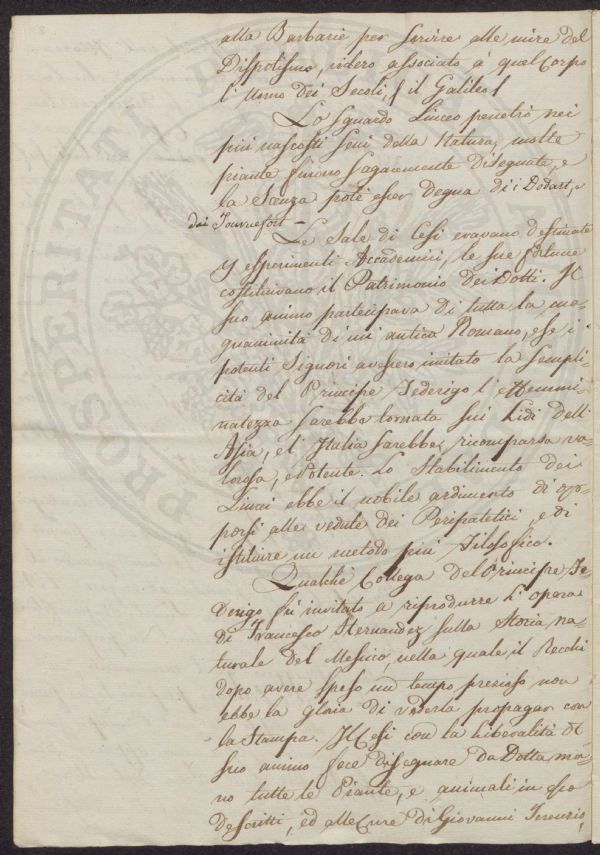 alla Barbarie per servire alle mire del
Dispotismo, videro associato à quel Corpo
l'Uomo dei Secoli, il Galileo
Lo sguardo Linceo penetrò nei
più nascosti seni della Natura, molte
piante furono sagacemente disegnate, e
la Scenza potè esser degna di i Dodart, e
dei Tournefort —
Le Sale di Cesi eravano destinate
gl'esperimenti Accademici, le sue fortune
costituivano il Patrimonio dei Dotti. Il
suo animo partecipava di tutta la ma-
gnanimità di un antico Romano, e se i
potenti Signori avessero imitato la Sempli-
cità del Principe Federigo l'effemmi-
natezza sarebbe tornata sui Lidi dell'
Asia, e l'Italia sarebbe ricomparsa va-
lorosa, e potente. Lo Stabilimento dei
Lincei ebbe il nobile ardimento di op-
porsi alle vedute dei Peripatetici, e di
istituire un metodo più Filosofico.
Qualche Collega del Principe Fe-
derigo fù invitato a riprodurre l'opera
di Francesco Hernandez sulla Storia na-
turale del Messico, nella quale il Recchi
dopo avere speso un tempo prezioso non
ebbe la gloria di vederla propagar con
la Stampa. Il Cesi con la liberalità di
suo animo fece disegnare da Dotta ma-
no tutte le Piante, e animali in essa
descritti, ed alle Cure di Giovanni Terenzio,
PROSPERITATI